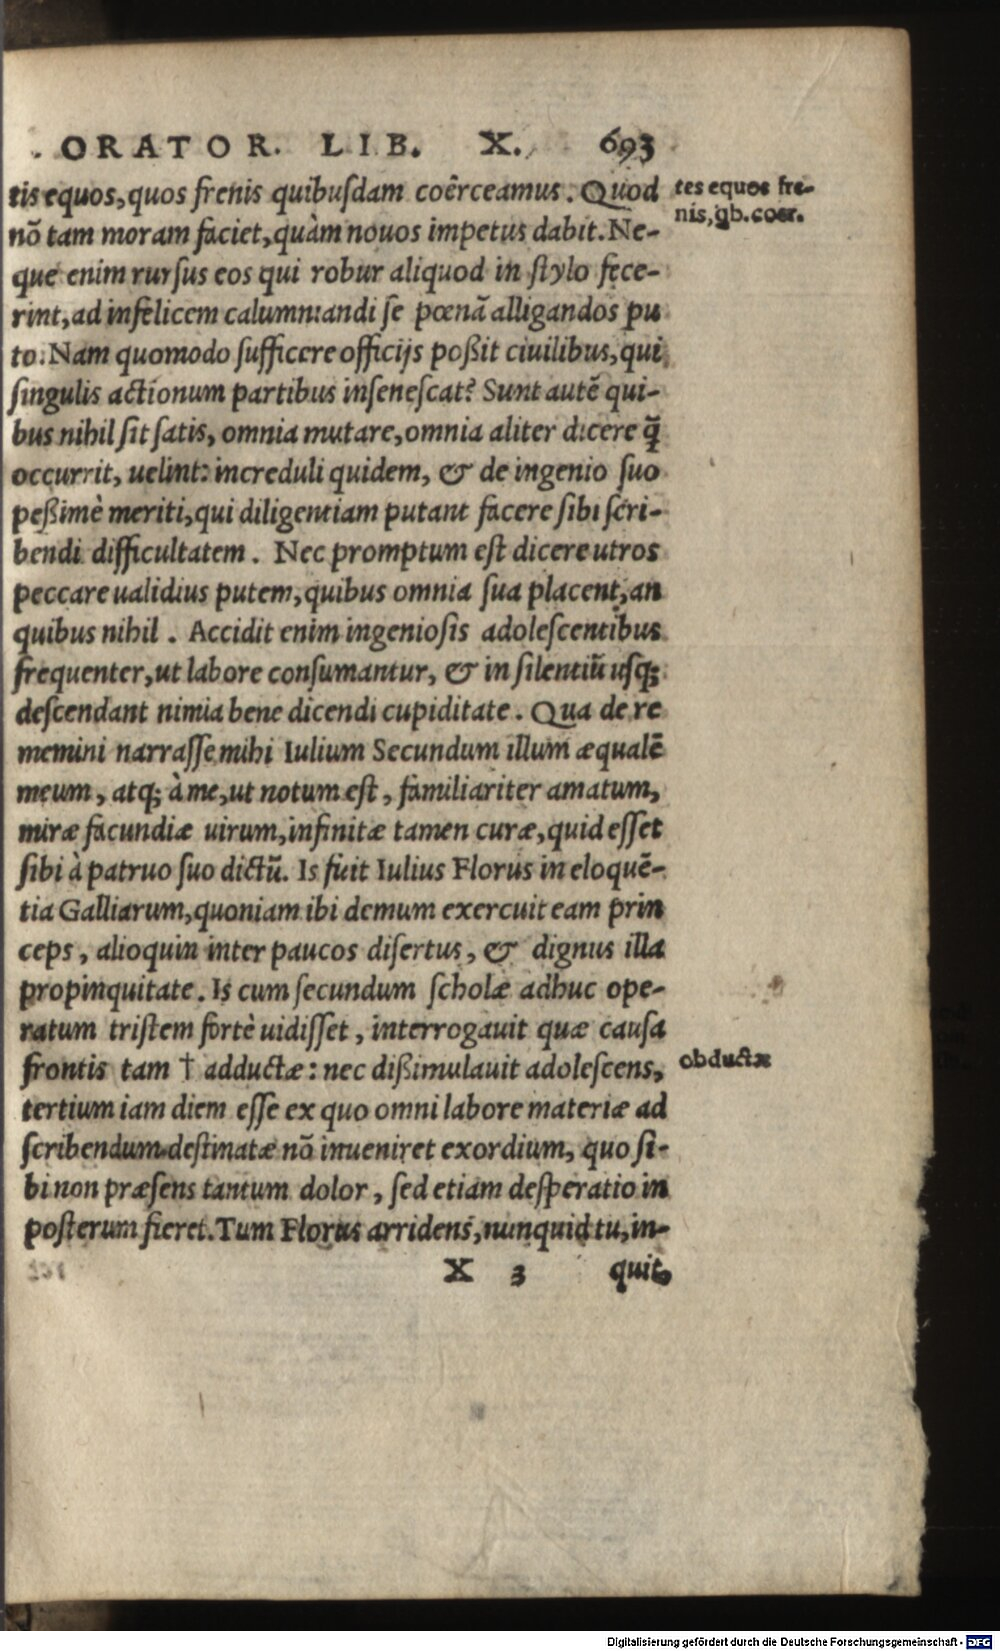 ORATOR. LIB. X. 693
tis equos, quos frenis quibuſdam coêrceamus. Quod
nō tam moram faciet, quàm nouos impetus dabit. Ne-
que enim rurſus eos qui robur aliquod in ſtylo fece-
rint, ad infelicem calumniandi ſe pœnā alligandos pu
to. Nam quomodo ſufficere officijs poßit ciuilibus, qui
ſingulis actionum partibus inſeneſcat? Sunt autē qui-
bus nihil ſit ſatis, omnia mutare, omnia aliter dicere q̄
occurrit, uelint: increduli quidem, & de ingenio ſuo
peßimè meriti, qui diligentiam putant facere ſibi ſcri-
bendi difficultatem. Nec promptum eſt dicere utros
peccare ualidius putem, quibus omnia ſua placent, an
quibus nihil. Accidit enim ingenioſis adoleſcentibus
frequenter, ut labore conſumantur, & in ſilentiū uſq;
deſcendant nimia bene dicendi cupiditate. Qua de re
memini narraſſe mihi Iulium Secundum illum æqualē
meum, atq; à me, ut notum eſt, familiariter amatum,
miræ facundiæ uirum, infinitæ tamen curæ, quid eſſet
ſibi à patruo ſuo dictū. Is fuit Iulius Florus in eloquē-
tia Galliarum, quoniam ibi demum exercuit eam prin
ceps, alioquin inter paucos diſertus, & dignus illa
propinquitate. Is cum ſecundum ſcholæ adhuc ope-
ratum triſtem fortè uidiſſet, interrogauit quæ cauſa
frontis tam † adductæ: nec dißimulauit adoleſcens,
tertium iam diem eſſe ex quo omni labore materiæ ad
ſcribendum deſtinatæ nō inueniret exordium, quo ſi-
bi non præſens tantum dolor, ſed etiam deſperatio in
poſterum fieret. Tum Florus arridens, nunquid tu, in-
X 3 quit,
tes equos fre-
nis, qb. coer.
obductæ
Digitalisierung gefördert durch die Deutsche Forschungsgemeinschaft - DFG